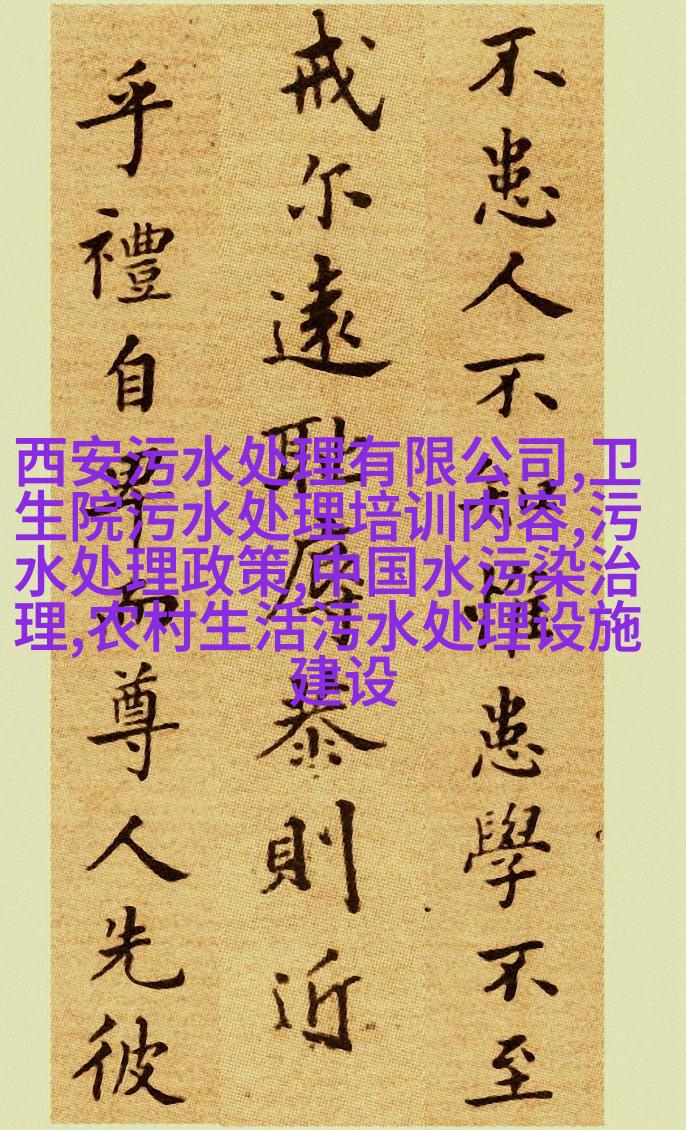 不患人不知惟患學不至
戒尔遠耻辱恭則近
乎禮自卑而尊人先彼
西安污水处理有限公司,卫
生院污水处理培训内容,污
水处理政策,中国水污染治
理,农村生活污水处理设施
建设